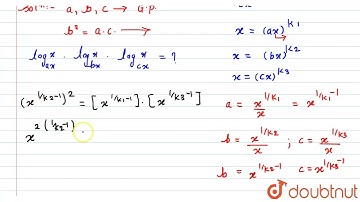 a, b, c → G.P.
b² = a.c →
log x . log x . log x = ?
ax bx cx
(x^(1/K2-1))² = [x^(1/K1-1)] . [x^(1/K3-1)]
x^2(1/K2-1)
x = (ax)^K1
x = (bx)^K2
x = (cx)^K3
a = x^(1/K1)/x = x^(1/K1-1)
b = x^(1/K2)/x ; c = x^(1/K3)/x
b = x^(1/K2-1) c = x^(1/K3-1)
doubtnut